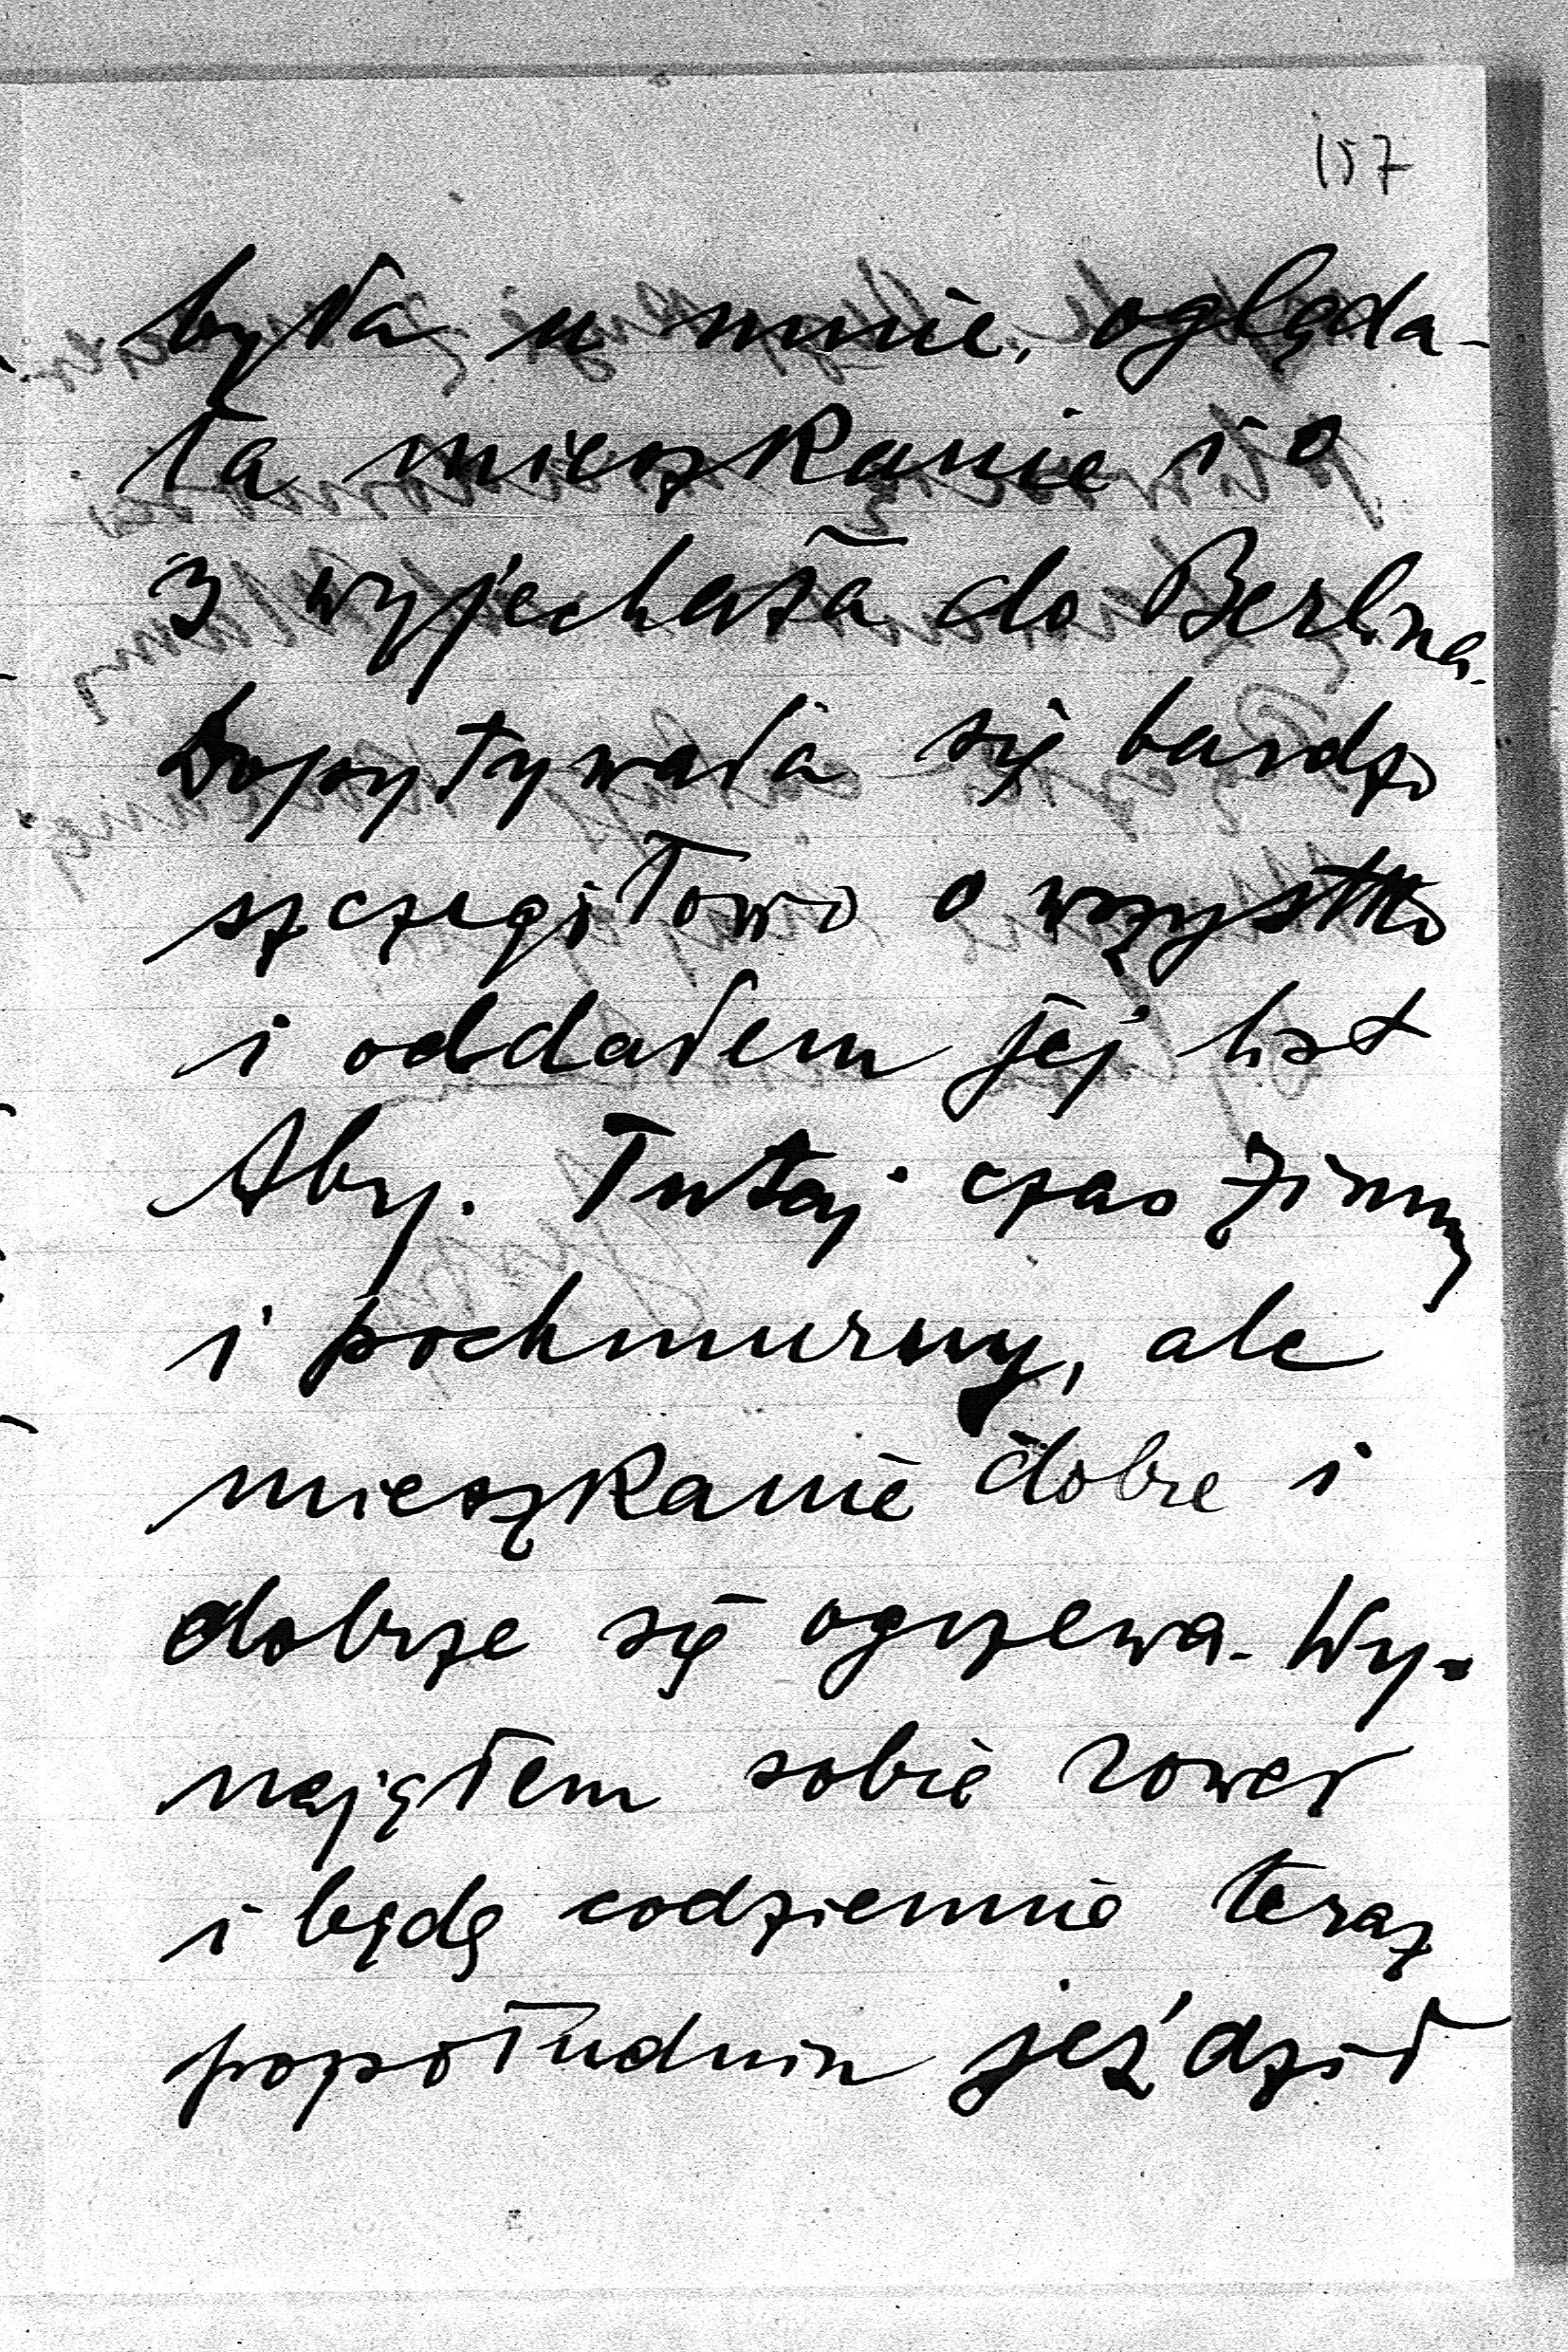 157
była u mnie, ogląda-
ła mieszkanie i o
3 wyjechała do Berlina.
Dopytywała się bardzo
szczegółowo o wszystko
i oddałem jej list
Aby. Tutaj czas zimny
i pochmurny, ale
mieszkanie dobre i
dobrze się ogrzewa. Wy-
nająłem sobie rower
i będę codziennie teraz
popołudniu jeździł